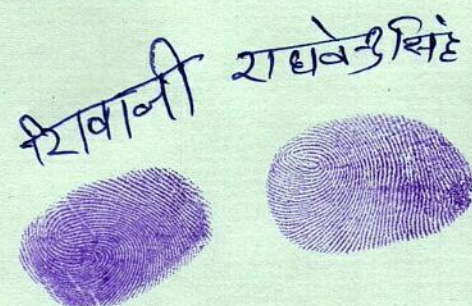 शिवानी राघवेन्द्रसिंह